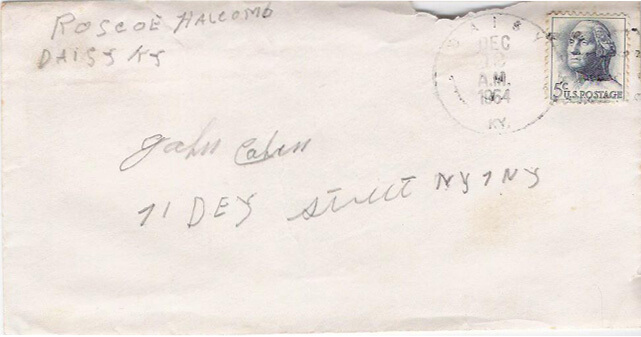 ROSCOE HALCOMB
DAISY KY
DAISY
DEC
A.M.
1964
KY.
5¢
U.S. POSTAGE
John Cohen
71 DEY Street NY 7 NY